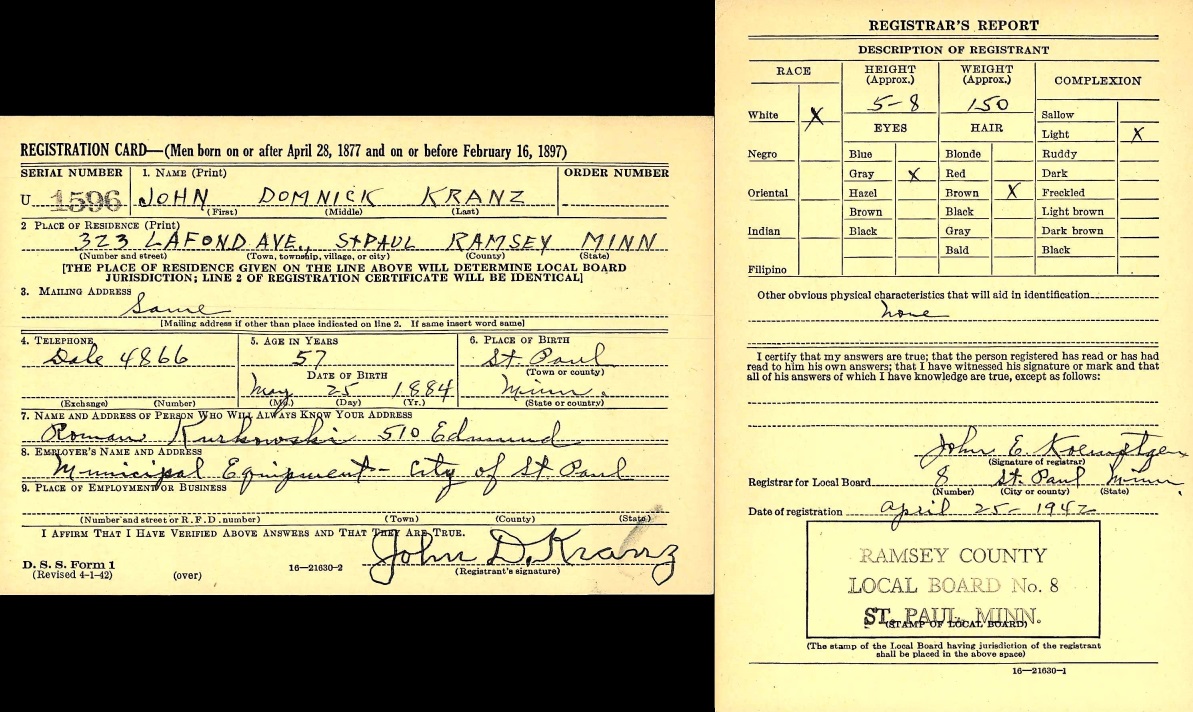 REGISTRATION CARD—(Men born on or after April 28, 1877 and on or before February 16, 1897)
SERIAL NUMBER
1. NAME (Print)
ORDER NUMBER
U 1596
JOHN DOMNICK KRANZ
(First) (Middle) (Last)
2 PLACE OF RESIDENCE (Print)
323 LAFOND AVE., ST PAUL RAMSEY MINN
(Number and street) (Town, township, village, or city) (County) (State)
[THE PLACE OF RESIDENCE GIVEN ON THE LINE ABOVE WILL DETERMINE LOCAL BOARD
JURISDICTION; LINE 2 OF REGISTRATION CERTIFICATE WILL BE IDENTICAL]
3. MAILING ADDRESS
Same
[Mailing address if other than place indicated on line 2. If same insert word same]
4. TELEPHONE
Dale 4866
(Exchange) (Number)
5. AGE IN YEARS
57
DATE OF BIRTH
May 25 1884
(Mo.) (Day) (Yr.)
6. PLACE OF BIRTH
St. Paul
(Town or county)
Minn.
(State or country)
7. NAME AND ADDRESS OF PERSON WHO WILL ALWAYS KNOW YOUR ADDRESS
Roman Kurkowski 510 Edmund
8. EMPLOYER'S NAME AND ADDRESS
Municipal Equipment - City of St Paul
9. PLACE OF EMPLOYMENT OR BUSINESS
(Number and street or R. F. D. number) (Town) (County) (State)
I AFFIRM THAT I HAVE VERIFIED ABOVE ANSWERS AND THAT THEY ARE TRUE.
John D. Kranz
D. S. S. Form 1
(Revised 4-1-42)
(over)
16—21630-2
(Registrant's signature)
REGISTRAR'S REPORT
DESCRIPTION OF REGISTRANT
RACE
HEIGHT
(Approx.)
WEIGHT
(Approx.)
COMPLEXION
5-8
150
White X
Negro
Oriental
Indian
Filipino
EYES
Blue
Gray X
Hazel
Brown
Black
HAIR
Blonde
Red
Brown X
Black
Gray
Bald
Sallow
Light X
Ruddy
Dark
Freckled
Light brown
Dark brown
Black
Other obvious physical characteristics that will aid in identification
None
I certify that my answers are true; that the person registered has read or has had
read to him his own answers; that I have witnessed his signature or mark and that
all of his answers of which I have knowledge are true, except as follows:
John E.
(Signature of registrar)
Registrar for Local Board 8 St. Paul Minn.
(Number) (City or county) (State)
Date of registration April 25 - 1942
RAMSEY COUNTY
LOCAL BOARD No. 8
ST. PAUL, MINN.
(STAMP OF LOCAL BOARD)
(The stamp of the Local Board having jurisdiction of the registrant
shall be placed in the above space)
16—21630-1